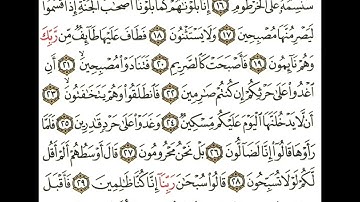 سَنَسِمُهُۥ عَلَى ٱلْخُرْطُومِ ١٦ إِنَّا بَلَوْنَٰهُمْ كَمَا بَلَوْنَآ أَصْحَٰبَ ٱلْجَنَّةِ إِذْ أَقْسَمُوا۟
لَيَصْرِمُنَّهَا مُصْبِحِينَ ١٧ وَلَا يَسْتَثْنُونَ ١٨ فَطَافَ عَلَيْهَا طَآئِفٌ مِّن رَّبِّكَ
وَهُمْ نَآئِمُونَ ١٩ فَأَصْبَحَتْ كَٱلصَّرِيمِ ٢٠ فَتَنَادَوْا۟ مُصْبِحِينَ ٢١ أَنِ
ٱغْدُوا۟ عَلَىٰ حَرْثِكُمْ إِن كُنتُمْ صَٰرِمِينَ ٢٢ فَٱنطَلَقُوا۟ وَهُمْ يَتَخَٰفَتُونَ ٢٣
أَن لَّا يَدْخُلَنَّهَا ٱلْيَوْمَ عَلَيْكُم مِّسْكِينٌ ٢٤ وَغَدَوْا۟ عَلَىٰ حَرْدٍ قَٰدِرِينَ ٢٥ فَلَمَّا
رَأَوْهَا قَالُوٓا۟ إِنَّا لَضَآلُّونَ ٢٦ بَلْ نَحْنُ مَحْرُومُونَ ٢٧ قَالَ أَوْسَطُهُمْ أَلَمْ أَقُل
لَّكُمْ لَوْلَا تُسَبِّحُونَ ٢٨ قَالُوا۟ سُبْحَٰنَ رَبِّنَآ إِنَّا كُنَّا ظَٰلِمِينَ ٢٩ فَأَقْبَلَ